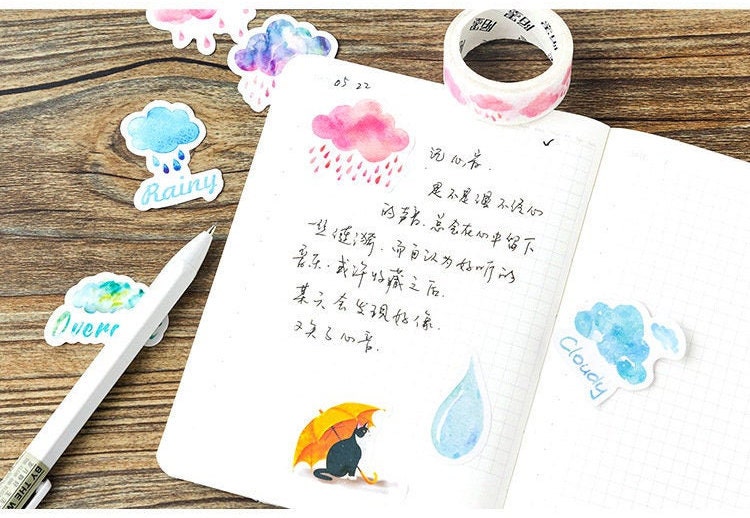 05 22
记心音.
是不是漫不经心
的声音,总会在心中留下
丝涟漪,而自认为好听的
音乐,或许收藏之后,
某天会发现好像.
又失了心音.
Rainy
Overc
Cloudy
BY THE W